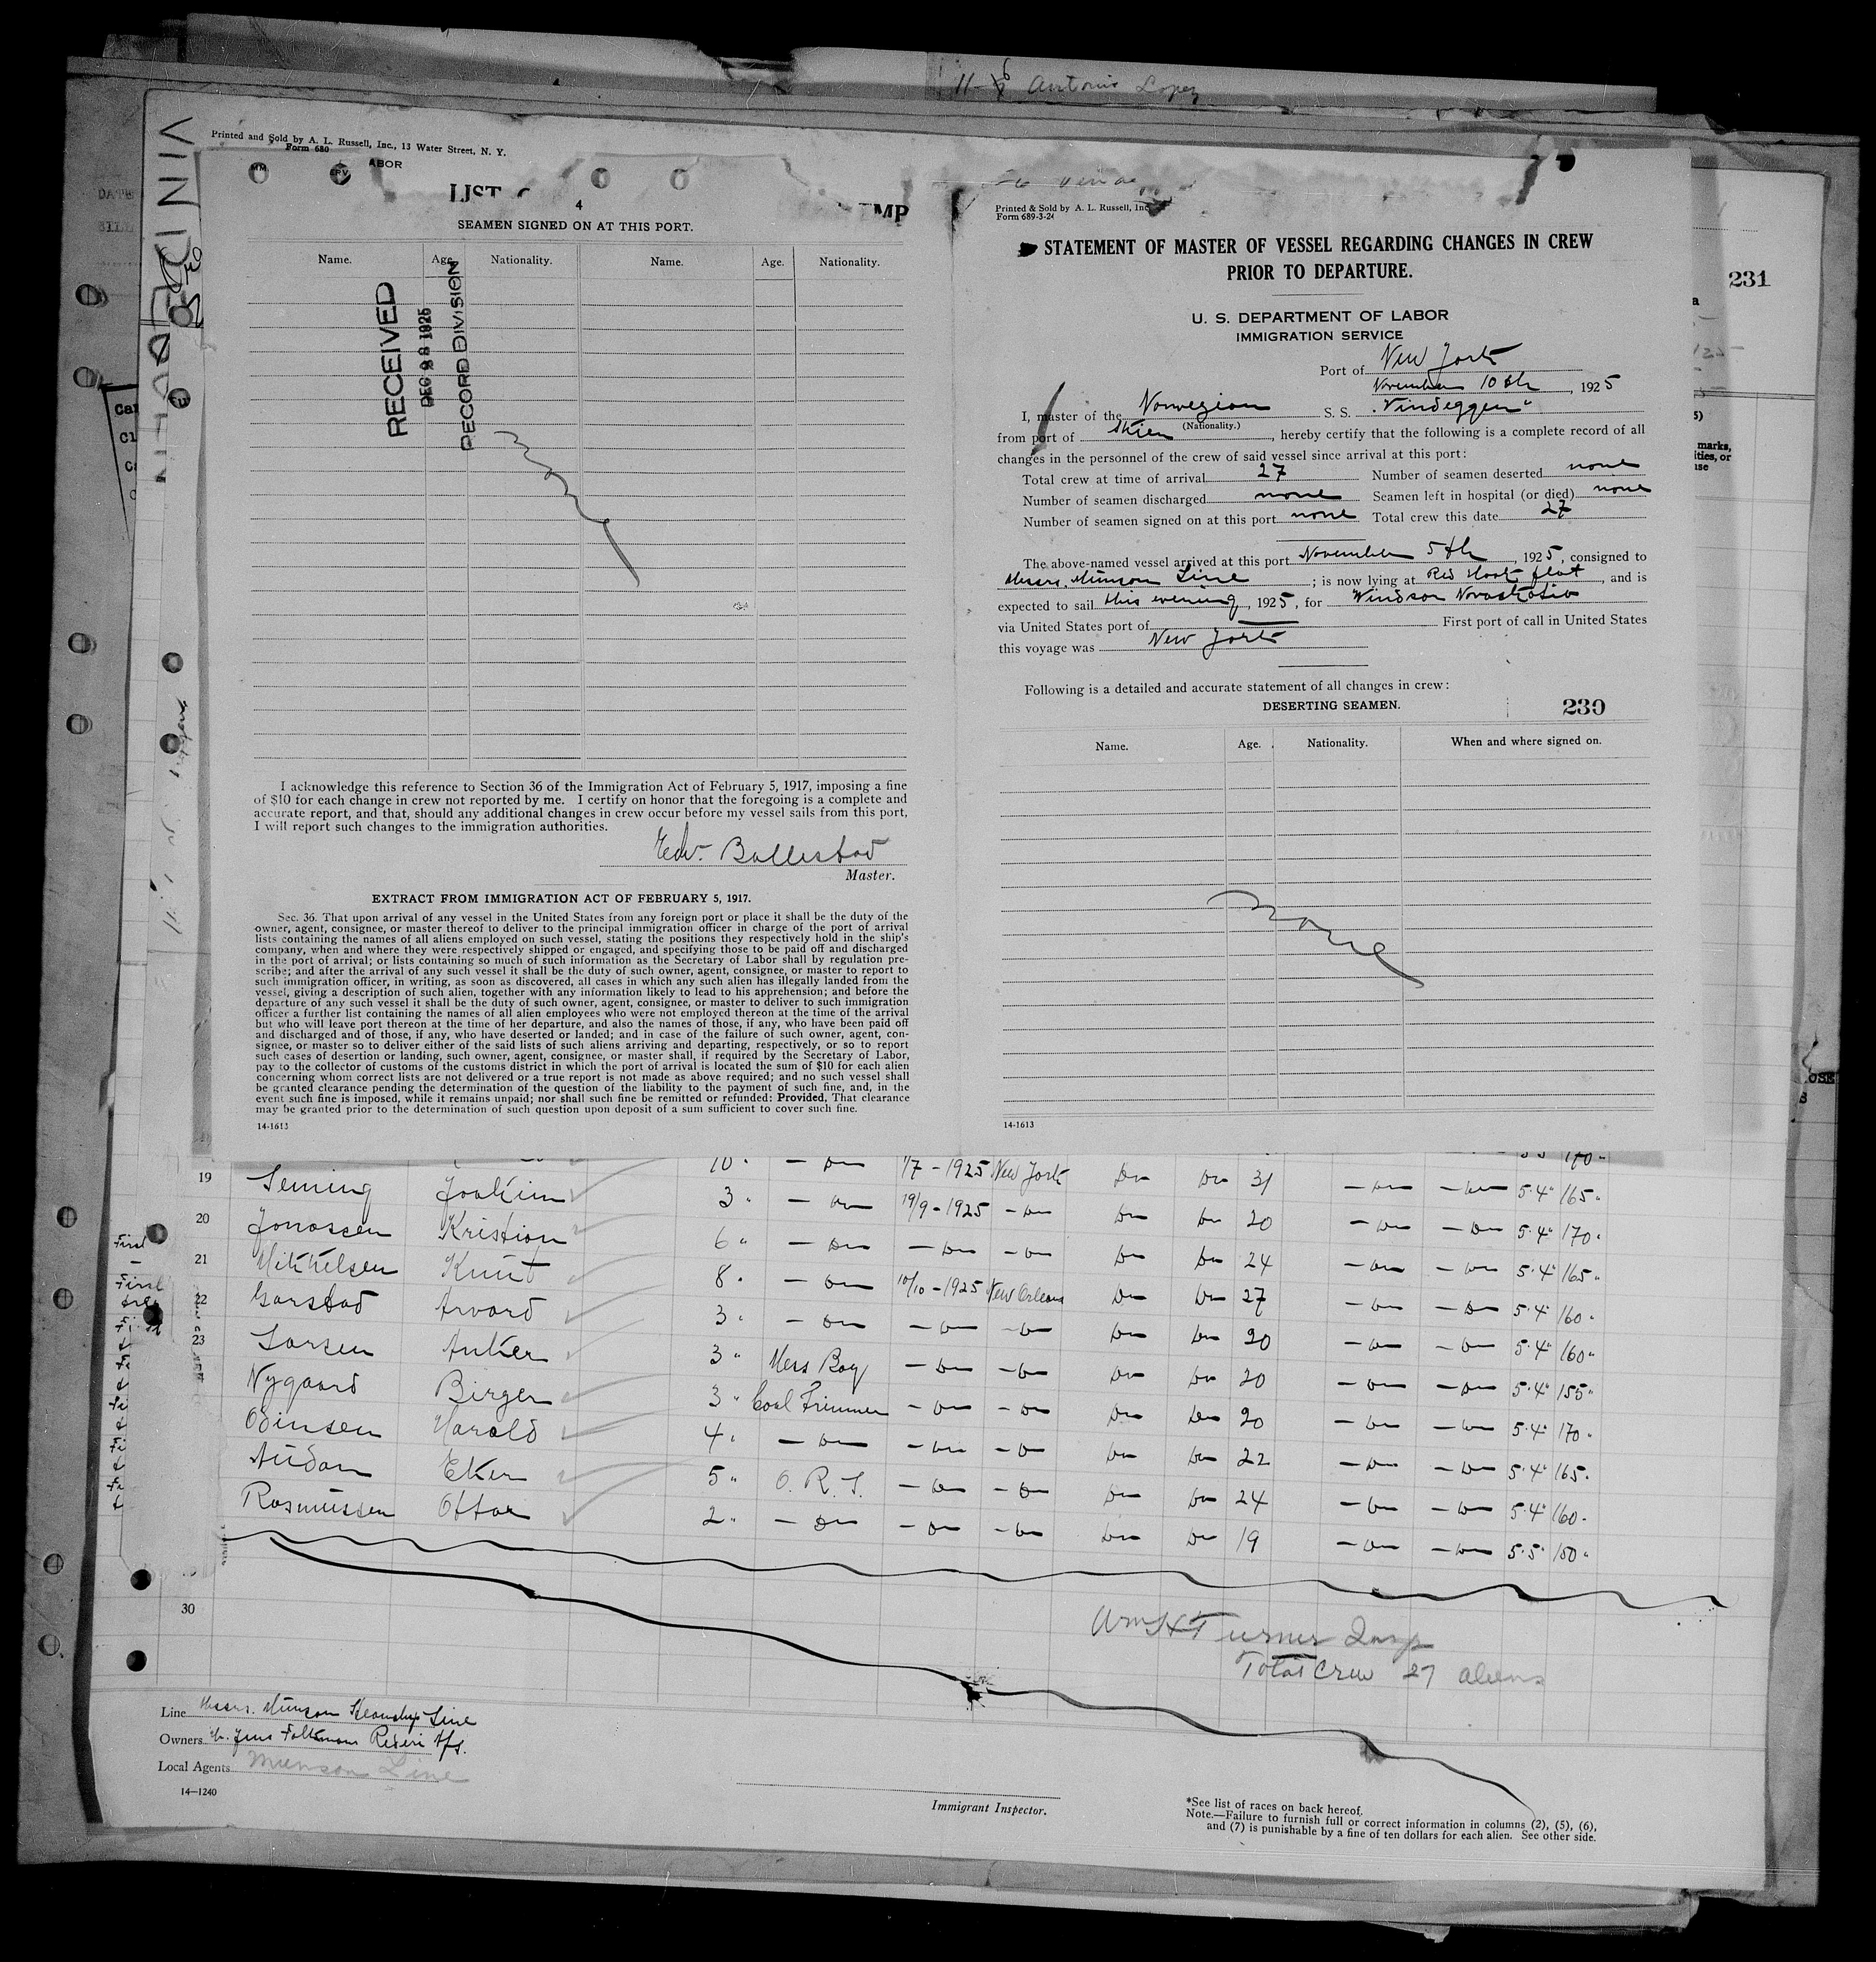 11-6 Antonio Lopez
Printed and Sold by A. L. Russell, Inc., 13 Water Street, N. Y.
Form 680
ABOR
LIST
4
SEAMEN SIGNED ON AT THIS PORT.
Name. Age. Nationality. Name. Age. Nationality.
RECEIVED
DEC 28 1925
RECORD DIVISION
None
I acknowledge this reference to Section 36 of the Immigration Act of February 5, 1917, imposing a fine
of $10 for each change in crew not reported by me. I certify on honor that the foregoing is a complete and
accurate report, and that, should any additional changes in crew occur before my vessel sails from this port,
I will report such changes to the immigration authorities.
Edv. Bollestad
Master.
EXTRACT FROM IMMIGRATION ACT OF FEBRUARY 5, 1917.
Sec. 36. That upon arrival of any vessel in the United States from any foreign port or place it shall be the duty of the
owner, agent, consignee, or master thereof to deliver to the principal immigration officer in charge of the port of arrival
lists containing the names of all aliens employed on such vessel, stating the positions they respectively hold in the ship's
company, when and where they were respectively shipped or engaged, and specifying those to be paid off and discharged
in the port of arrival; or lists containing so much of such information as the Secretary of Labor shall by regulation pre-
scribe; and after the arrival of any such vessel it shall be the duty of such owner, agent, consignee, or master to report to
such immigration officer, in writing, as soon as discovered, all cases in which any such alien has illegally landed from the
vessel, giving a description of such alien, together with any information likely to lead to his apprehension; and before the
departure of any such vessel it shall be the duty of such owner, agent, consignee, or master to deliver to such immigration
officer a further list containing the names of all alien employees who were not employed thereon at the time of the arrival
but who will leave port thereon at the time of her departure, and also the names of those, if any, who have been paid off
and discharged and of those, if any, who have deserted or landed; and in case of the failure of such owner, agent, con-
signee, or master so to deliver either of the said lists of such aliens arriving and departing, respectively, or so to report
such cases of desertion or landing, such owner, agent, consignee, or master shall, if required by the Secretary of Labor,
pay to the collector of customs of the customs district in which the port of arrival is located the sum of $10 for each alien
concerning whom correct lists are not delivered or a true report is not made as above required; and no such vessel shall
be granted clearance pending the determination of the question of the liability to the payment of such fine, and, in the
event such fine is imposed, while it remains unpaid; nor shall such fine be remitted or refunded: Provided, That clearance
may be granted prior to the determination of such question upon deposit of a sum sufficient to cover such fine.
14-1613
Printed & Sold by A. L. Russell, Inc.
Form 689-3-24
STATEMENT OF MASTER OF VESSEL REGARDING CHANGES IN CREW
PRIOR TO DEPARTURE.
U. S. DEPARTMENT OF LABOR
IMMIGRATION SERVICE
Port of New York
November 10th, 1925
I, master of the Norwegian S. S. "Vindeggen"
(Nationality.)
from port of Skien, hereby certify that the following is a complete record of all
changes in the personnel of the crew of said vessel since arrival at this port:
Total crew at time of arrival 27 Number of seamen deserted none
Number of seamen discharged none Seamen left in hospital (or died) none
Number of seamen signed on at this port none Total crew this date 27
The above-named vessel arrived at this port November 5th, 1925, consigned to
Messrs. Munson Line; is now lying at Red Hook flat, and is
expected to sail this evening, 1925, for Windsor Novaskotia
via United States port of — First port of call in United States
this voyage was New York
Following is a detailed and accurate statement of all changes in crew:
DESERTING SEAMEN.
230
Name. Age. Nationality. When and where signed on.
None
14-1613
231
marks,
ities, or
19 Leming Joakim 10" — Do 1/7 - 1925 New York Do Do 31 — Do — Do 5.4" 165"
20 Jonassen Kristian 3" — Do 19/9 - 1925 — Do Do Do 20 — Do — Do 5.4" 170"
21 Mikkelsen Knut 6" — Do — Do — Do Do Do 24 — Do — Do 5.4" 165"
22 Garstad Arvard 8" — Do 10/10 - 1925 New Orleans Do Do 27 — Do — Do 5.4" 160"
23 Larsen Anker 3" — Do — Do — Do Do Do 20 — Do — Do 5.4" 160"
Nygaard Birger 3" Mess Boy — Do — Do Do Do 20 — Do — Do 5.4" 155"
Odinsen Harald 3" Coal Trimmer — Do — Do Do Do 20 — Do — Do 5.4" 170"
Audan Eker 4" — Do — Do — Do Do Do 22 — Do — Do 5.4" 165"
Rasmussen Ottar 5" O. R. S. — Do — Do Do Do 24 — Do — Do 5.4" 160"
2" — Do — Do — Do Do Do 19 — Do — Do 5.5" 150"
30
Wm H Turner Insp
Total Crew 27 aliens
Line Messrs. Munson Steamship Line
Owners
Local Agents Munson Line
14—1240
Immigrant Inspector.
*See list of races on back hereof.
Note.—Failure to furnish full or correct information in columns (2), (5), (6),
and (7) is punishable by a fine of ten dollars for each alien. See other side.